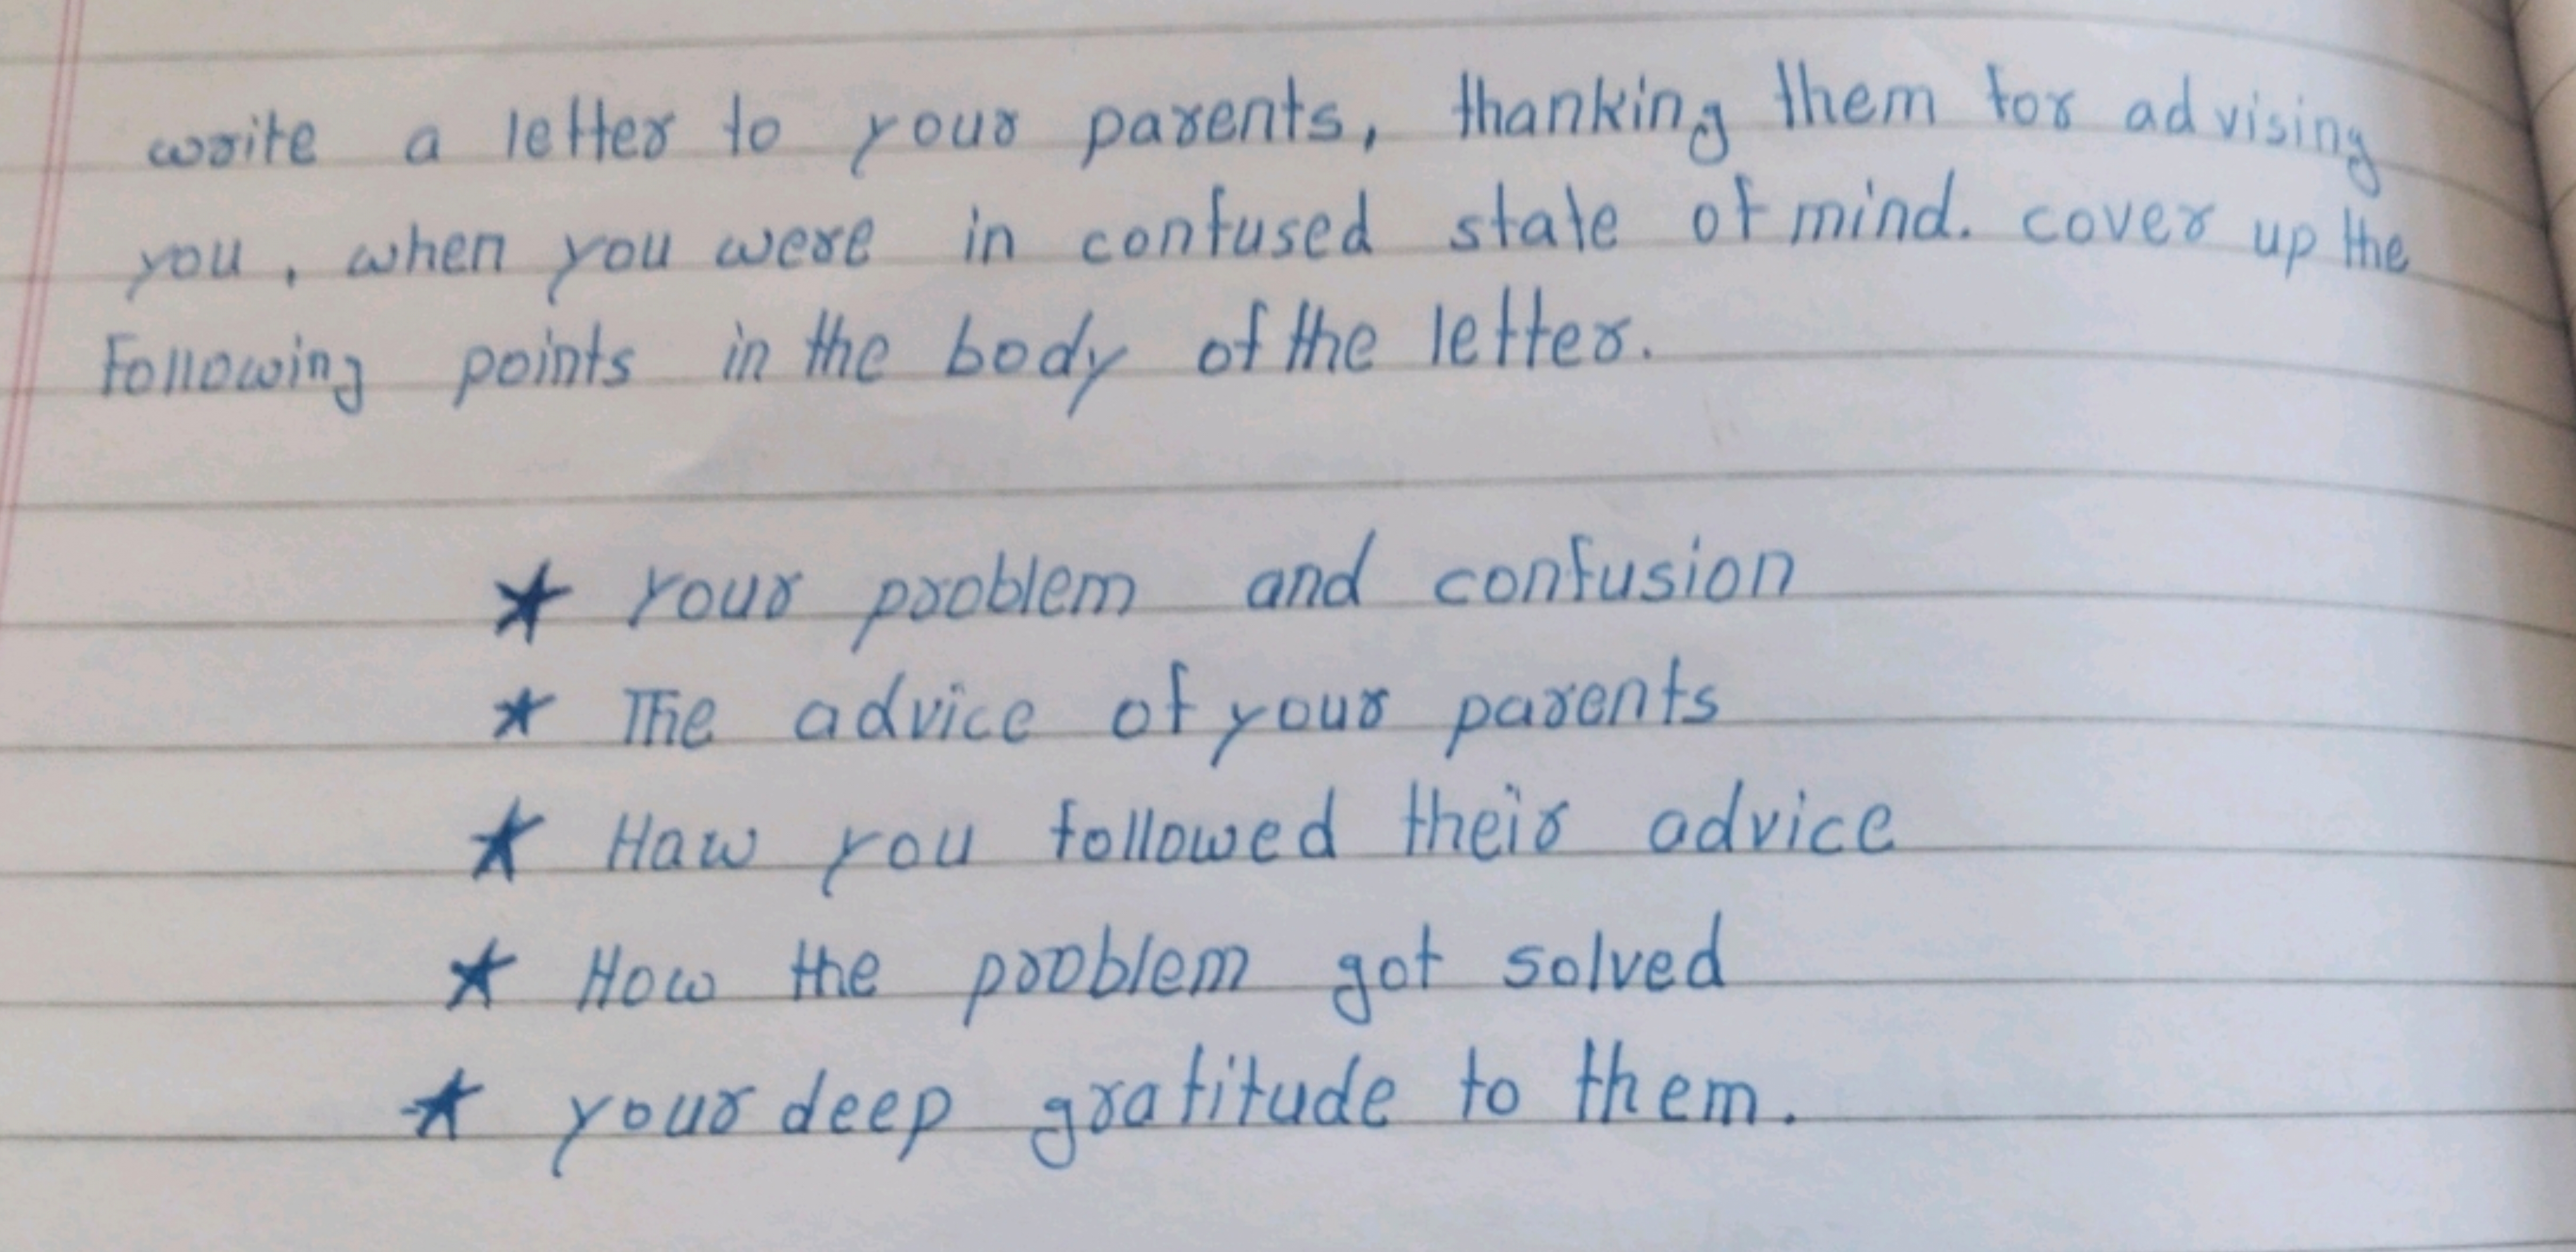 write a letter to your parents, thanking them for advising
you, when you were in confused state of mind. cover up the
Following points in the body of the letter.
★ Your problem and confusion
★ The advice of your parents
★ Haw you followed their advice
★ How the problem got solved
★ your deep gratitude to them.